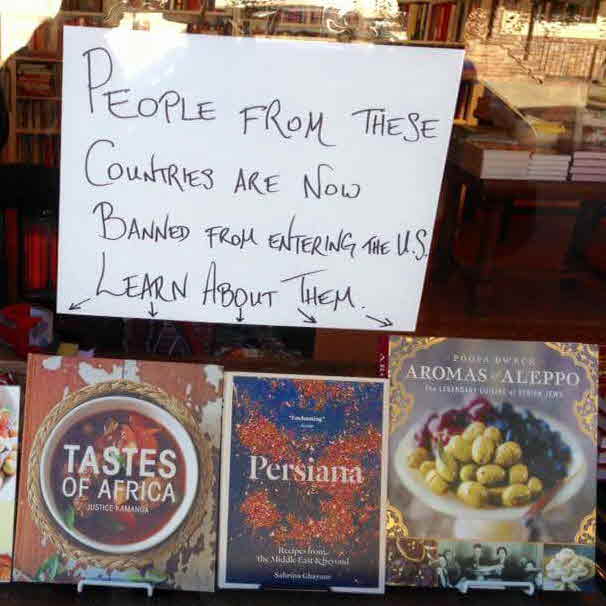 PEOPLE FROM THESE
COUNTRIES ARE NOW
BANNED FROM ENTERING THE U.S.
LEARN ABOUT THEM.
TASTES
OF AFRICA
JUSTICE KAMANGA
"Enchanting"
Persiana
Recipes from
the Middle East & beyond
Sabrina Ghayour
POOPA DWECK
AROMAS of ALEPPO
The LEGENDARY CUISINE of SYRIAN JEWS